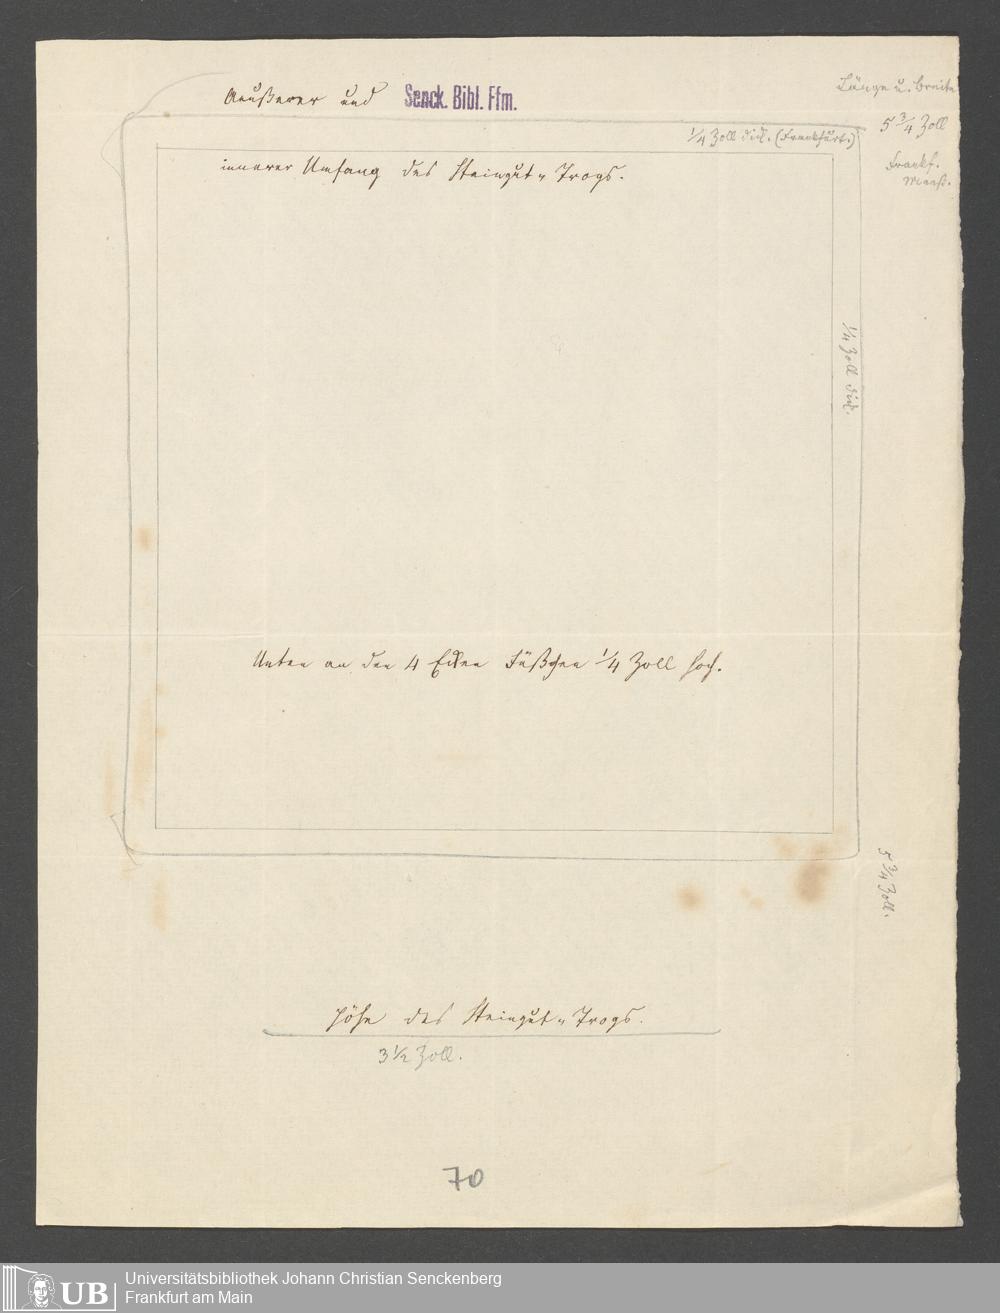 Aeußerer und Senck. Bibl. Ffm.
Länge u. Breite
5 3/4 Zoll
Frankf.
Maaß.
1/4 Zoll dick. (Frankfurt.)
innerer Umfang des Steingut-Trogs.
1/4 Zoll dick.
Unten an den 4 Ecken Füßchen 1/4 Zoll hoch.
5 3/4 Zoll.
Höhe des Steingut-Trogs.
3 1/2 Zoll.
70
UB Universitätsbibliothek Johann Christian Senckenberg
Frankfurt am Main